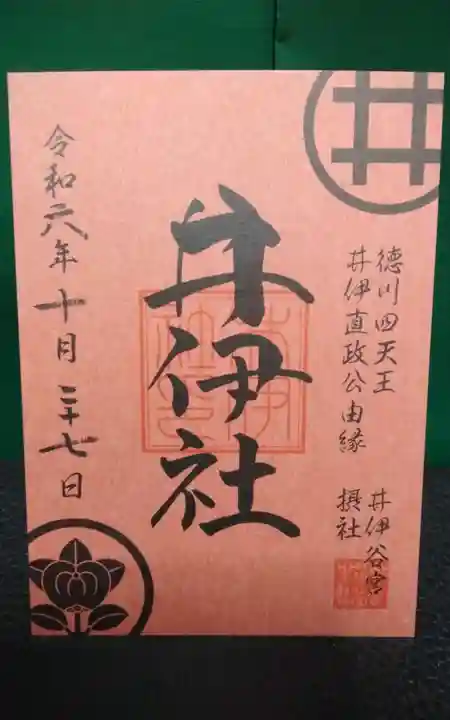 徳川四天王
井伊直政公由縁
井伊谷宮
摂社
井伊社
令和六年十月二十七日